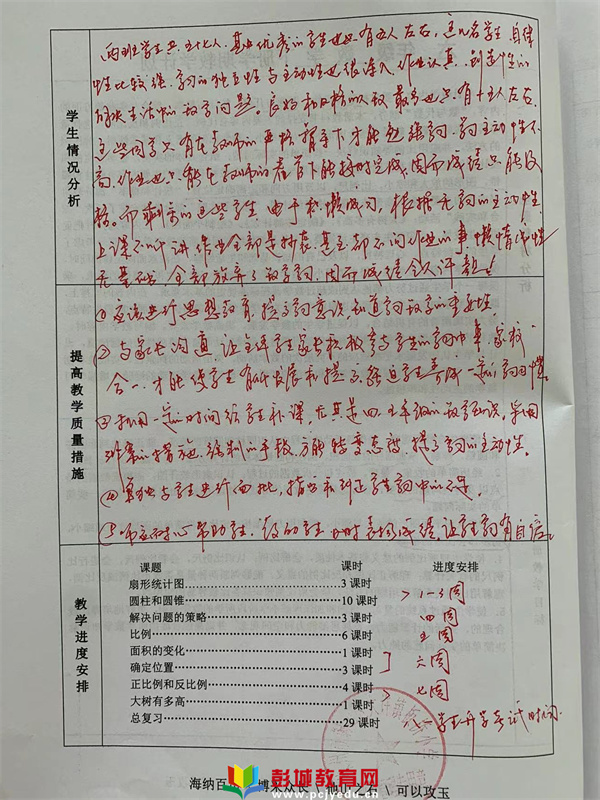 学生情况分析
两班学生共五十七人,基中优秀的学生也只有五人左右,这几名学生自律
性比较强,学习的独立性与主动性也很深入,作业认真,创造性的
解决生活中的数学问题。良好和及格的人数最多也只有十五人左右,
这些同学只有在教师的严格指导下才能勉强学习,学习主动性不
高,作业也只能在教师的看管下能按时完成,因而成绩只能及
格。而剩余的这些学生,由于积懒成习,根据无学习的主动性,
上课不听讲,作业全部是抄袭,甚至都不问作业的事,懒惰成性
无基础,全部放弃了数学学习,因而成绩令人汗颜!
提高教学质量措施
①应该进行思想教育,提高学习意识,知道学习数学的重要性。
②与家长沟通,让学生家长积极参与学生的学习中来,家校
合一,才能使学生有所发展和提高,督促学生养成一定的学习习惯。
③利用一定的时间给学生补课,尤其是四、五年级的数学知识,采用
④单独与学生进行面批,指出和纠正学生学习中的不足。
⑤师应耐心帮助学生,
让学生学习有自信。
教学进度安排
课题 课时 进度安排
扇形统计图 3课时
圆柱和圆锥 10课时 1-3周
解决问题的策略 3课时 四周
比例 6课时 五周
面积的变化 1课时
确定位置 3课时 六周
正比例和反比例 4课时 七周
大树有多高 1课时
总复习 29课时 八—学生升学考试时间.
海纳百 博采众长 他山之石 可以攻玉
彭城教育网
www.pcjyedu.cn